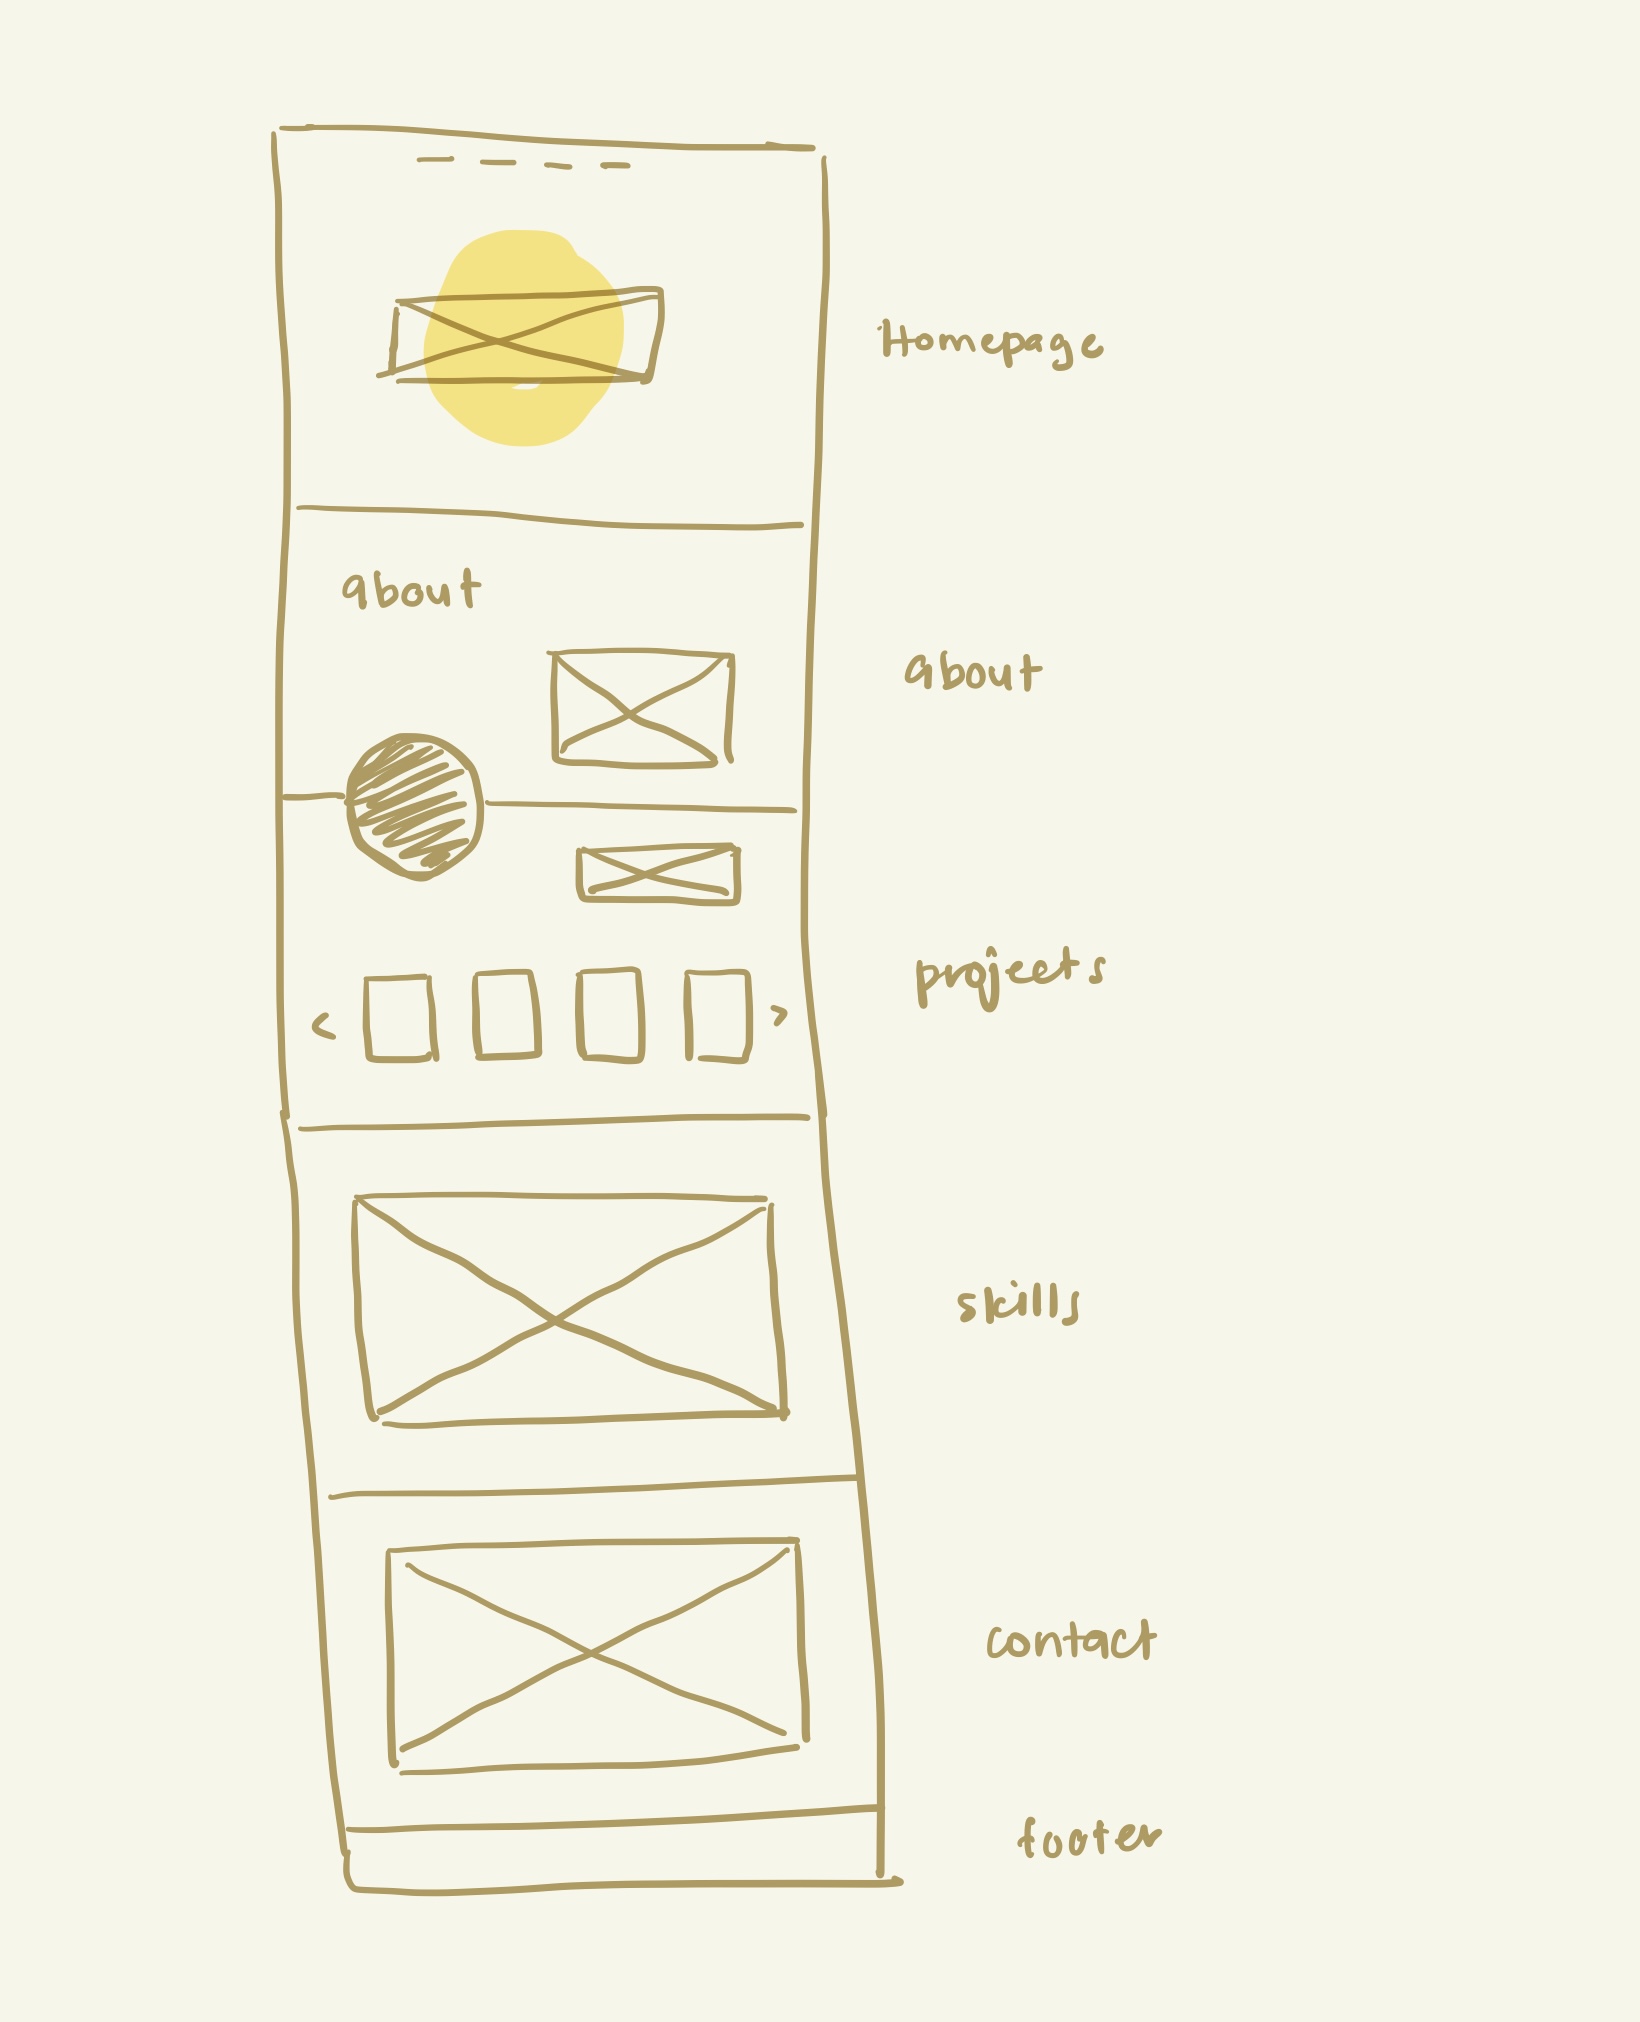 Homepage
about
about
projects
<
>
skills
contact
footer